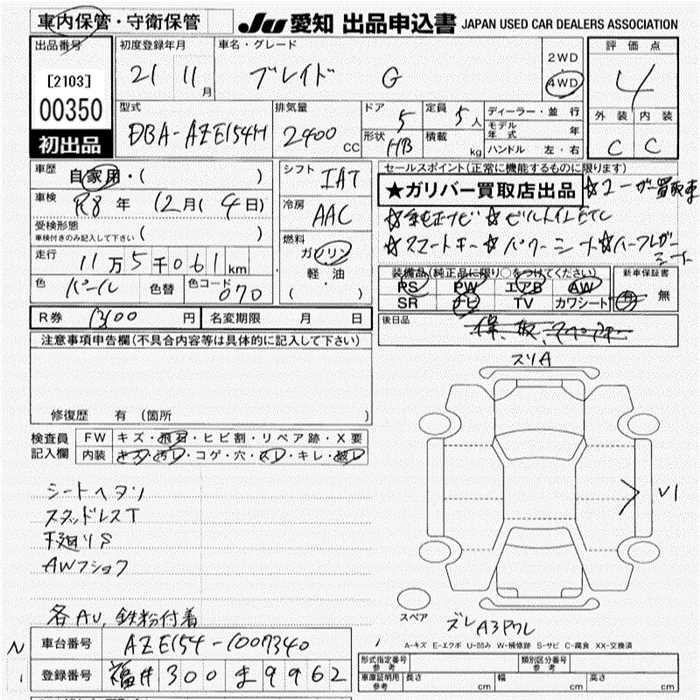 車内保管・守衛保管
JU 愛知 出品申込書 JAPAN USED CAR DEALERS ASSOCIATION
出品番号
[2103]
00350
初出品
初度登録年月
21 11月
車名・グレード
ブレイド G
2WD
4WD
評価点
4
型式
DBA-AZE154H
排気量
2400 CC
ドア 5
形状 HB
定員 5人
積載 kg
ディーラー・並行
モデル年式 年
ハンドル 左・右
外装 内装
C C
車歴 自家用・( )
車検 R8年 12月( 4日)
受検形態
車検付きのみ記入して下さい ( )
走行 11万5千061km
色 パール 色替 色コード 070
シフト IAT
冷房 AAC
燃料
ガソリン
軽油
( ・ )
セールスポイント(正常に機能するものに限ります)
★ガリバー買取店出品 ☆ユーザー買取車
☆純正ナビ ☆ビルトインETC
☆スマートキー ☆パワーシート ☆ハーフレザーシート
装備品(純正品に限り○をつけてください)
PS PW エアB AW
SR ナビ TV カワシート
新車保証書
有 無
R券 1300円
名変期限 月 日
後日品
注意事項申告欄(不具合内容等は具体的に記入して下さい)
修復歴 有(箇所 )
検査員記入欄
FW キズ・飛石・ヒビ割・リペア跡・X要
内装 キズ・汚レ・コゲ・穴・スレ・キレ・破レ
シートヘタリ
スタッドレスT
下廻りS
AWフショク
各AU, 鉄粉付着
スリA
V1
スペア
ズレ A3アリ
A-キズ E-エクボ U-凹み W-補修跡 S-サビ C-腐食 XX-交換済
車台番号 AZE154-1007340
登録番号 福井300ま9962
形式指定番号 参考
類別区分番号 参考
車庫証明用 参考 長さ cm 幅 cm 高さ cm